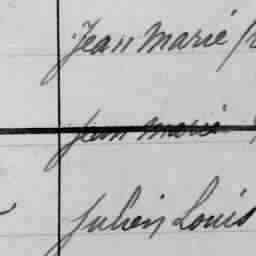 Jean Marie
Jean Marie
Julien Louis